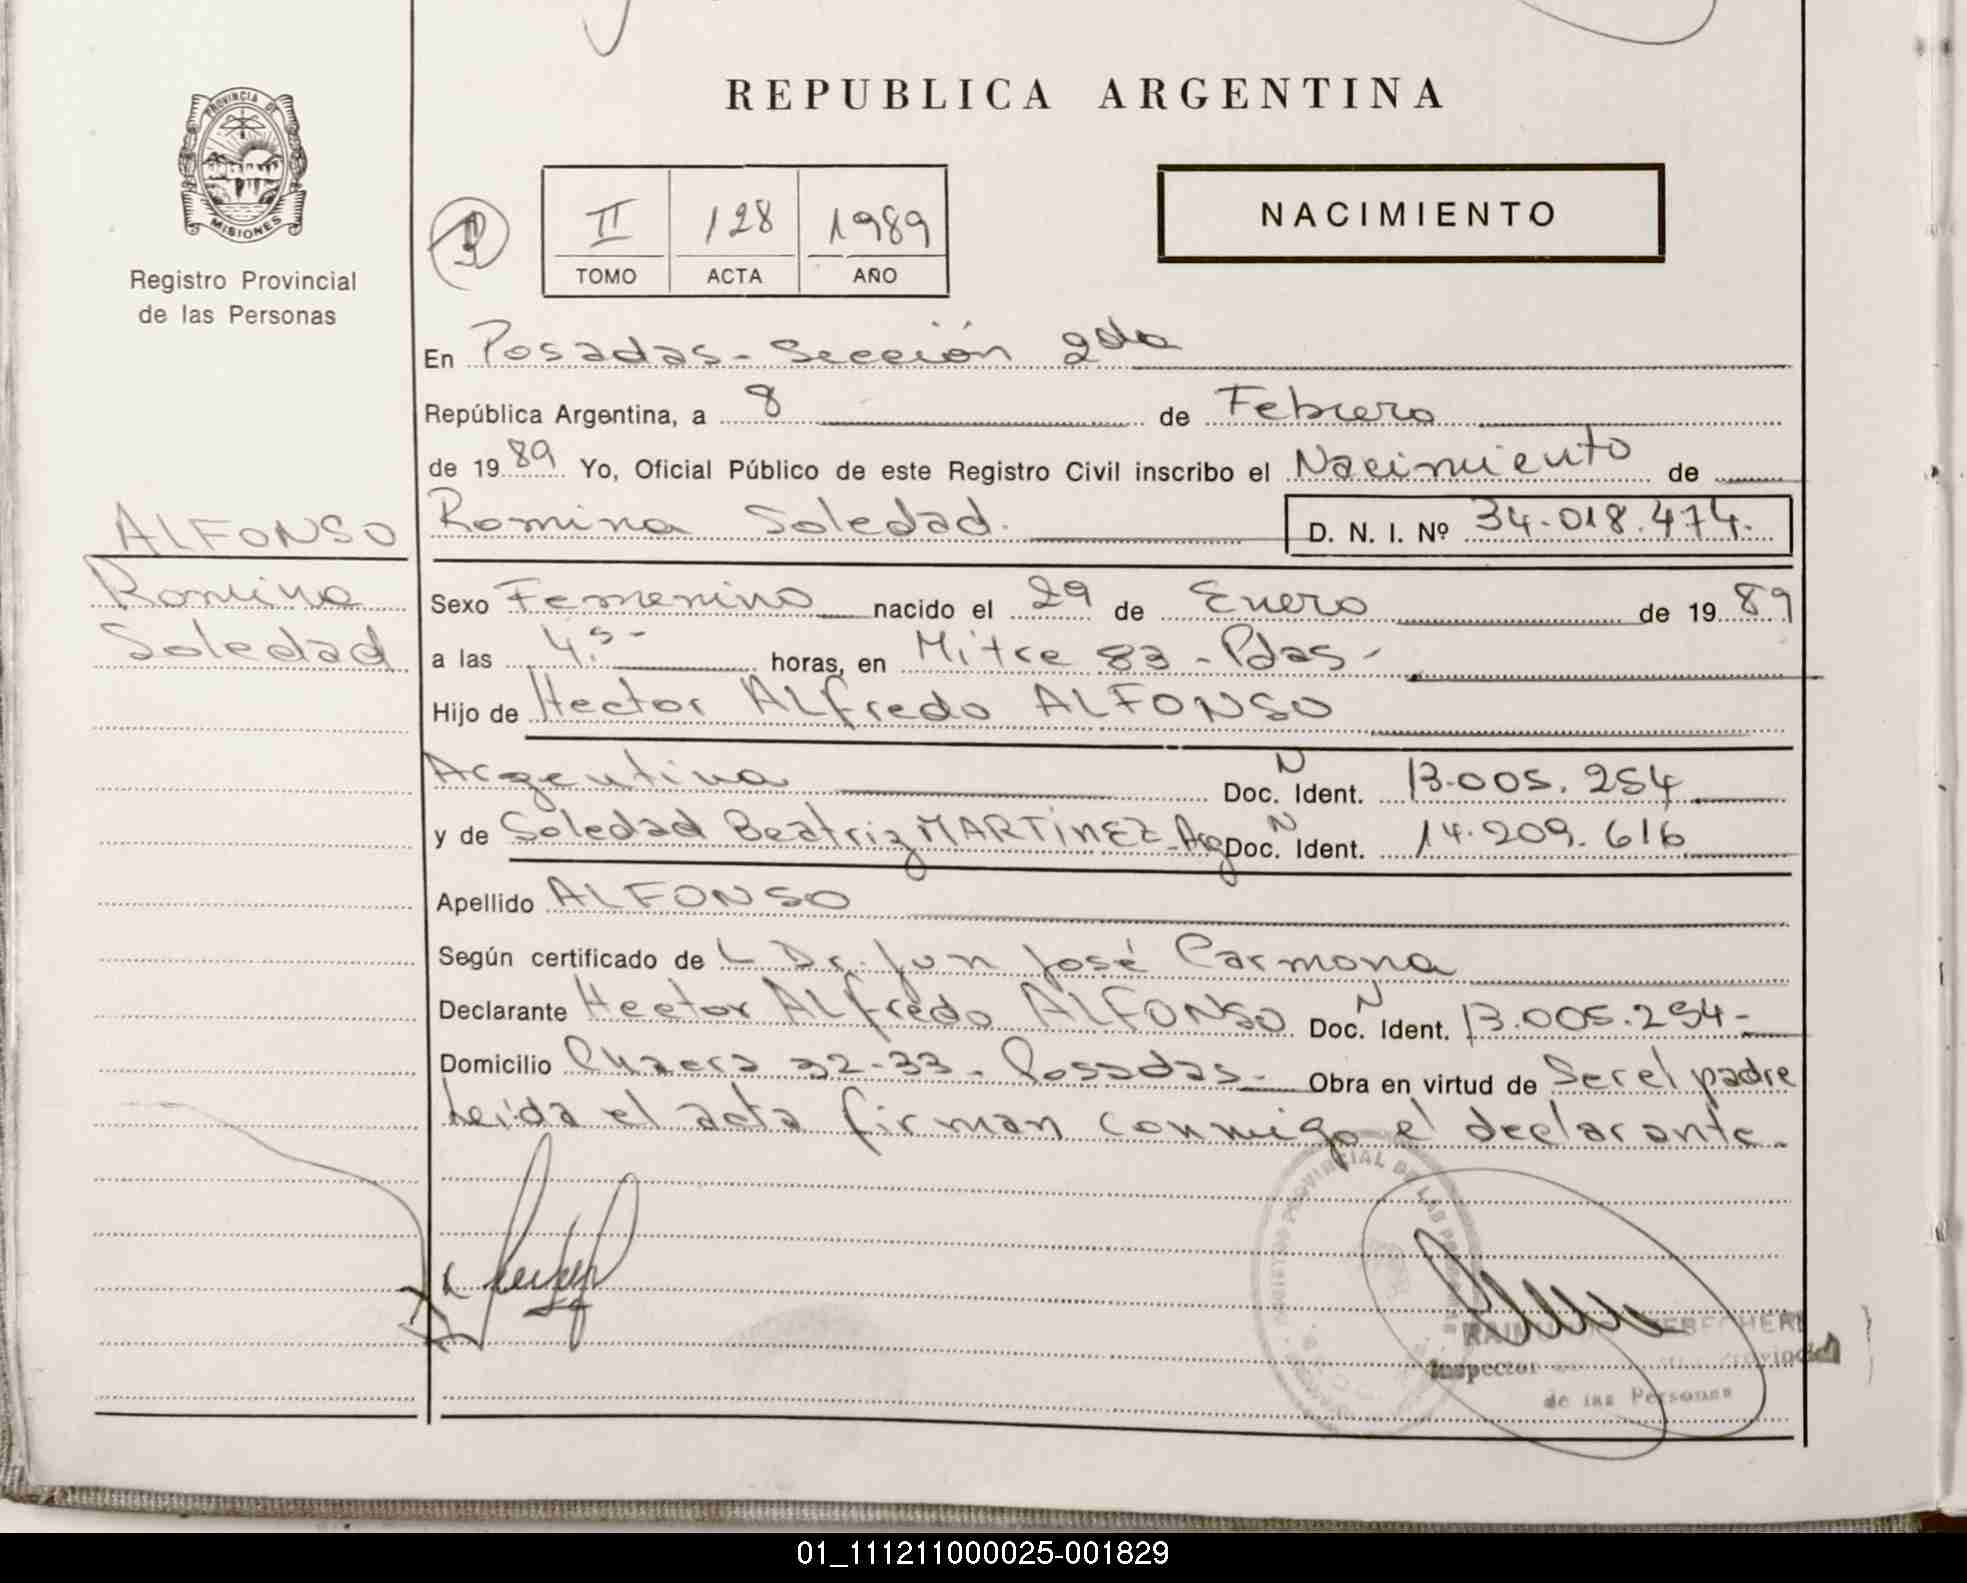 REPUBLICA ARGENTINA
PROVINCIA DE
MISIONES
Registro Provincial
de las Personas
II 128 1989
TOMO ACTA AÑO
NACIMIENTO
En Posadas - Sección 2da
República Argentina, a 8 de Febrero
de 1989 Yo, Oficial Público de este Registro Civil inscribo el Nacimiento de
Romina Soledad. D. N. I. Nº 34.018.474.
ALFONSO
Romina
Soledad
Sexo Femenino nacido el 29 de Enero de 1989
a las 4.5 - horas, en Mitre 83 - Pdas -
Hijo de Hector ALfredo ALFONSO
Argentina Doc. N Ident. 13.005.254
y de Soledad Beatriz MARTINEZ - Arg Doc. N Ident. 14.209.616
Apellido ALFONSO
Según certificado de L Dr. Jun José Carmona
Declarante Hector ALfredo ALFONSO Doc. N Ident. 13.005.254 -
Domicilio Chacra 32-33 - Posadas - Obra en virtud de Ser el padre
Leída el acta firman conmigo el declarante.
REGISTRO PROVINCIAL DE LAS PERSONAS
Inspector
de las Personas
01_111211000025-001829